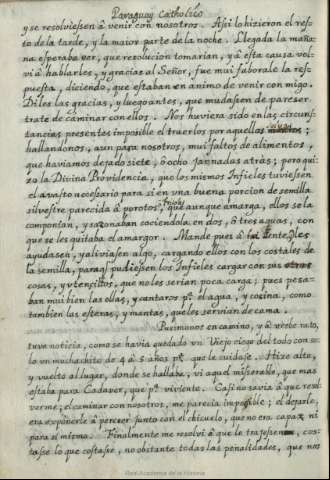 Paraguay Catholico
y se resolviessen à venir con nosotros. Assi lo hizieron el res-
to de la tarde, y la maior parte de la noche. Llegada la maña-
na esperaba ver, que resolucion tomarian, y à esta causa vol-
vi à hablarles, y gracias al Señor, fue mui faborable la res-
puesta, diciendo, que estaban en animo de venir con migo.
Diles las gracias, y luego antes, que mudassen de pareser
trate de caminar con ellos. Nos huviera sido en las circuns-
tancias presentes imposible el traerlos por aquellos
hallandonos, aun para nosotros, mui faltos de alimentos,
que haviamos dejado siete, ò ocho jornadas atràs; pero qui-
zo la Divina Providencia, que los mismos Infieles tuviessen
el avasto necessario para si en una buena porcion de semilla
silvestre parecida à porotos, que aunque amarga, ellos se la
componian, y sazonaban cociendola en dos, ò tres aguas, con
que se les quitaba el amargor. Mandè pues à Gente, les
ayudassen, y aliviassen algo, cargando ellos con los costales de
la semilla, paraq pudiessen los Infieles cargar con sus
cosas, y utensilios, que no les serian poca carga; pues pesa-
ban mui bien las ollas, y cantaros pa el agua, y cosina, como
tambien las esteras, y mantas, que les servian de cama.
Pusimonos en camino, y à vreve rato,
tuve noticia, como se havia quedado un Viejo ciego del todo con so-
lo un muchachito de 4 à 5 años pa que le cuidasse. Hize alto,
y vuelto al lugar, donde se hallaba, vi aquel miserable, que mas
estaba para Cadaver, que pa viviente. Casi no savia à que resol-
verme; el caminar con nosotros, me parecia imposible; el dejarle,
era exponerle à perecer junto con el chicuelo, que no era capaz ni
para si mismo. Finalmente me resolvi à que le trajessen, cos-
tasse lo que costasse, no obstante todas las penalidades, que nos
Real Academia de la Historia